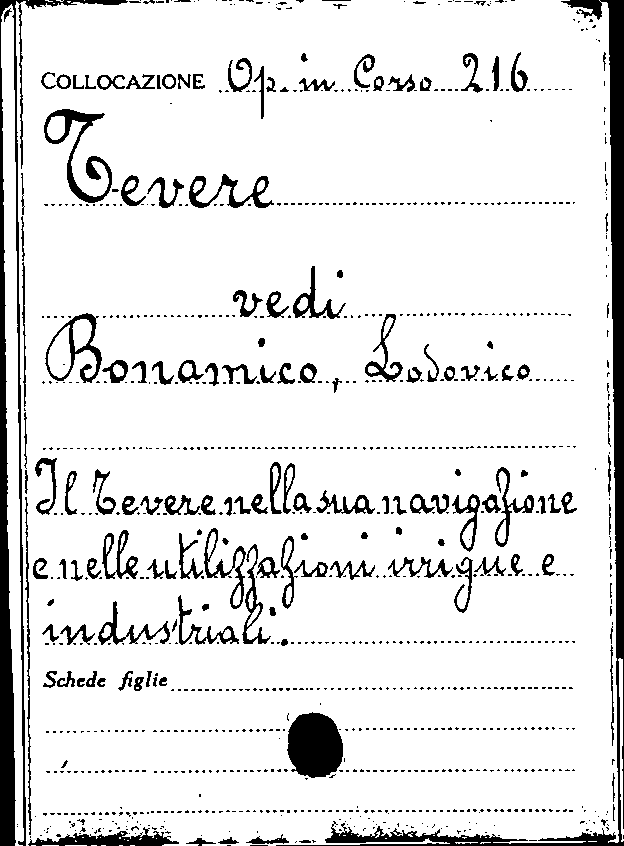 COLLOCAZIONE Op. in Corso 216
Tevere
vedi
Bonamico, Lodovico
Il Tevere nella sua navigazione
e nelle utilizzazioni irrigue e
industriali.
Schede figlie